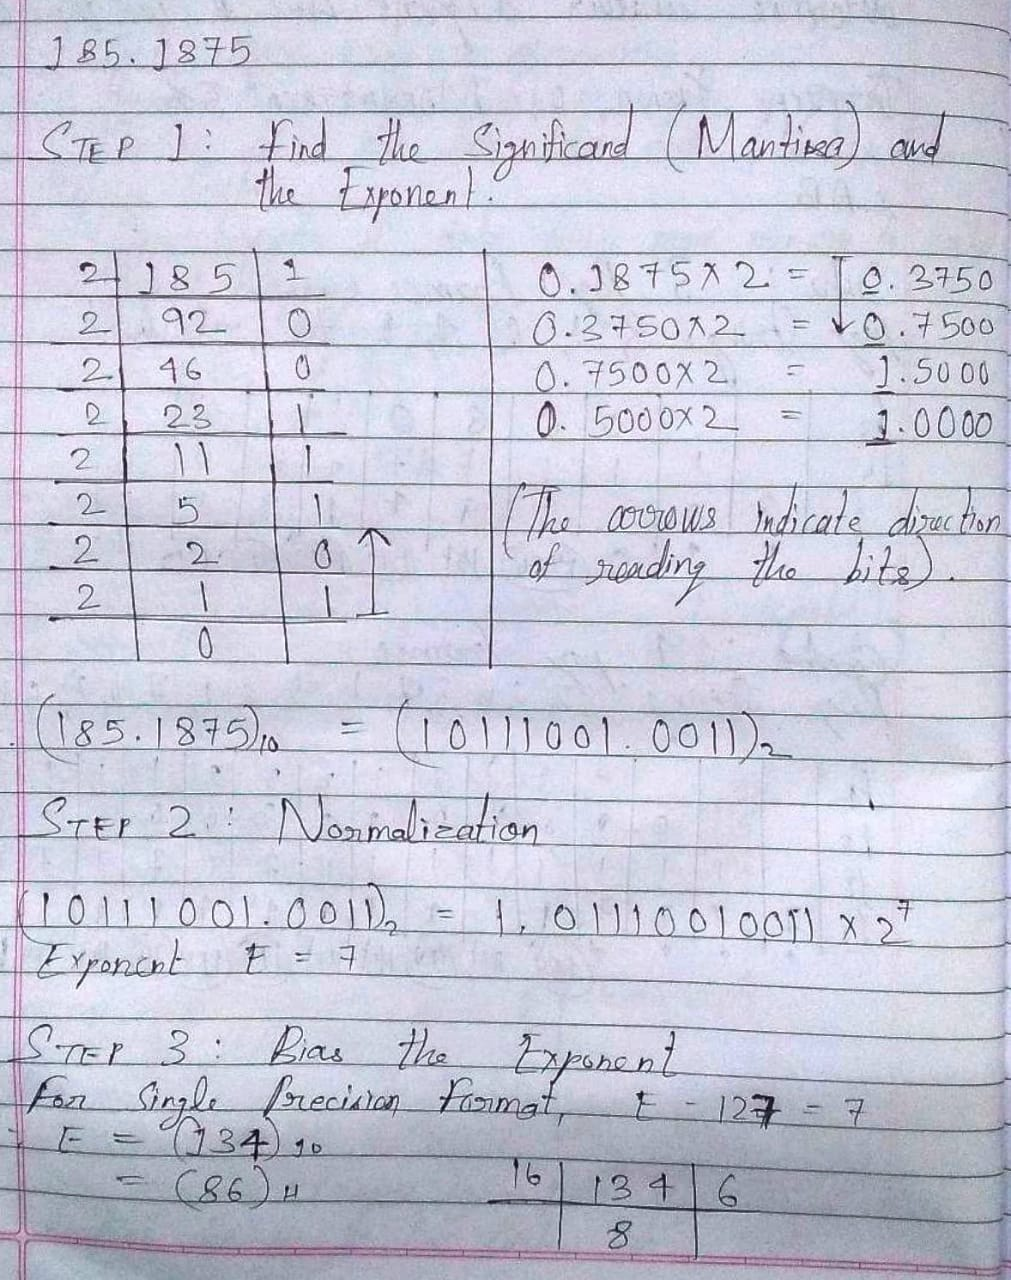 185.1875
STEP 1: Find the Significand (Mantissa) and
the Exponent.
2 185 1
2 92 0
2 46 0
2 23 1
2 11 1
2 5 1
2 2 0
2 1 1
0
0.1875 x 2 = 0.3750
0.3750 x 2 = 0.7500
0.7500 x 2 = 1.5000
0.5000 x 2 = 1.0000
(The arrows indicate direction
of reading the bits).
(185.1875)10 = (10111001.0011)2
STEP 2: Normalization
(10111001.0011)2 = 1.01110010011 x 2^7
Exponent E = 7
STEP 3: Bias the Exponent
For Single Precision Format, E - 127 = 7
E = (134)10
= (86)H
16 134 6
8